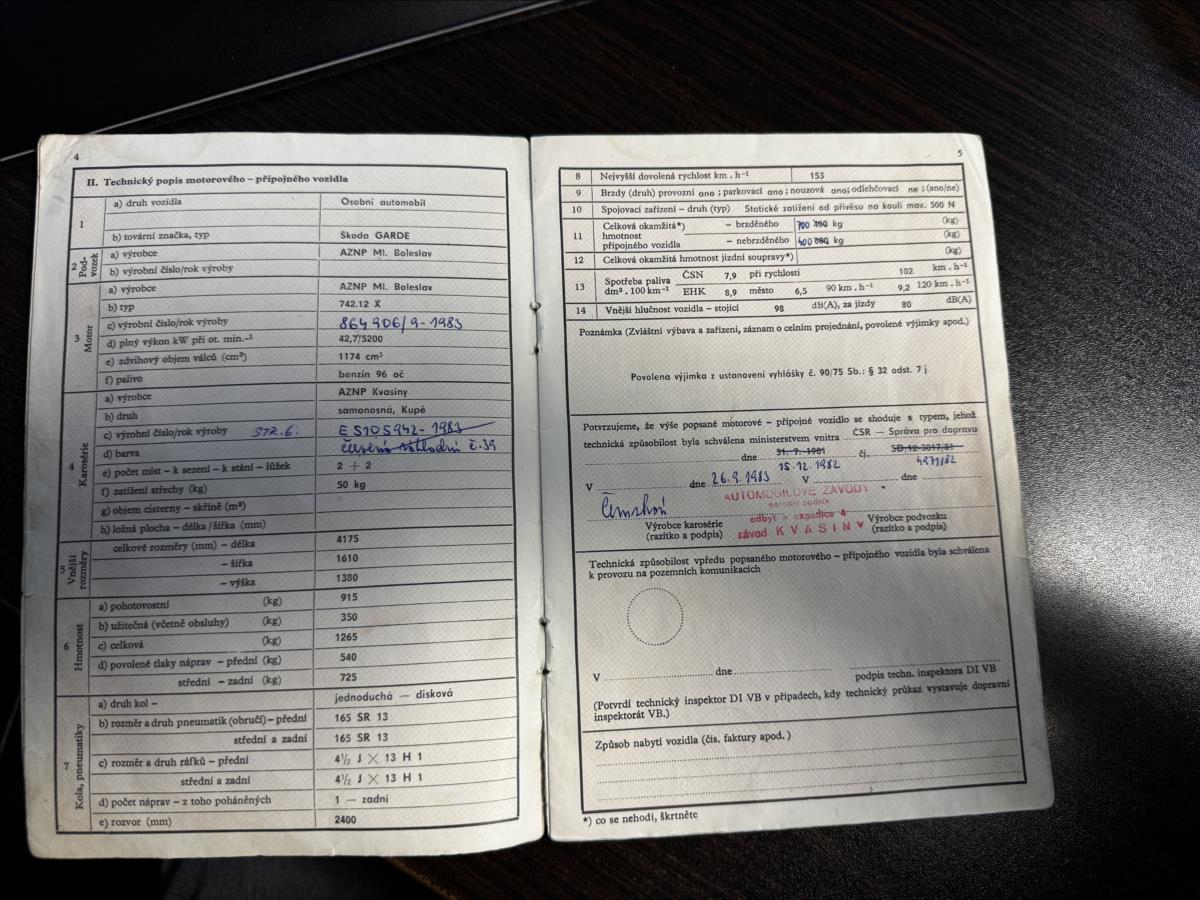 4
II. Technický popis motorového – přípojného vozidla
1
a) druh vozidla Osobní automobil
b) tovární značka, typ Škoda GARDE
2 Pod-vozek
a) výrobce AZNP Ml. Boleslav
b) výrobní číslo/rok výroby
3 Motor
a) výrobce AZNP Ml. Boleslav
b) typ 742.12 X
c) výrobní číslo/rok výroby 864906/9-1983
d) plný výkon kW při ot. min.⁻¹ 42,7/5200
e) zdvihový objem válců (cm³) 1174 cm³
f) palivo benzin 96 oč
4 Karosérie
a) výrobce AZNP Kvasiny
b) druh samonosná, Kupé
c) výrobní číslo/rok výroby STR.6. E5105942-1983
d) barva červená č.39
e) počet míst – k sezení – k stání – lůžek 2 + 2
f) zatížení střechy (kg) 50 kg
g) objem cisterny – skříně (m³)
h) ložná plocha – délka/šířka (mm)
5 Vnější rozměry
celkové rozměry (mm) – délka 4175
– šířka 1610
– výška 1380
6 Hmotnost
a) pohotovostní (kg) 915
b) užitečná (včetně obsluhy) (kg) 350
c) celková (kg) 1265
d) povolené tlaky náprav – přední (kg) 540
střední – zadní (kg) 725
7 Kola, pneumatiky
a) druh kol – jednoduchá — disková
b) rozměr a druh pneumatik (obručí) – přední 165 SR 13
střední a zadní 165 SR 13
c) rozměr a druh ráfků – přední 4½ J × 13 H 1
střední a zadní 4½ J × 13 H 1
d) počet náprav – z toho poháněných 1 — zadní
e) rozvor (mm) 2400
5
8 Nejvyšší dovolená rychlost km . h⁻¹ 153
9 Brzdy (druh) provozní ano ; parkovací ano ; nouzová ano; odlehčovací ne ; (ano/ne)
10 Spojovací zařízení – druh (typ) Statické zatížení od přívěsu na kouli max. 500 N
11 Celková okamžitá*) hmotnost přípojného vozidla
– brzděného 700 kg (kg)
– nebrzděného 400 kg (kg)
12 Celková okamžitá hmotnost jízdní soupravy*) (kg)
13 Spotřeba paliva dm³ . 100 km⁻¹
ČSN 7,9 při rychlosti 102 km . h⁻¹
EHK 8,9 město 6,5 90 km . h⁻¹ 9,2 120 km . h⁻¹
14 Vnější hlučnost vozidla – stojící 98 dB(A), za jízdy 80 dB(A)
Poznámka (Zvláštní výbava a zařízení, záznam o celním projednání, povolené výjimky apod.)
Povolena výjimka z ustanovení vyhlášky č. 90/75 Sb.: § 32 odst. 7 j
Potvrzujeme, že výše popsané motorové – přípojné vozidlo se shoduje s typem, jehož
technická způsobilost byla schválena ministerstvem vnitra ČSR — Správa pro dopravu
dne 31. 7. 1981 čj. SD 12-3017/81
15.12.1982 4271/82
V dne 26.9.1983 V dne
AUTOMOBILOVÉ ZÁVODY
národní podnik
odbyt a expedice 4
závod KVASINY
Výrobce karosérie
(razítko a podpis)
Výrobce podvozku
(razítko a podpis)
Technická způsobilost vpředu popsaného motorového – přípojného vozidla byla schválena
k provozu na pozemních komunikacích
V dne
podpis techn. inspektora DI VB
(Potvrdí technický inspektor DI VB v případech, kdy technický průkaz vystavuje dopravní
inspektorát VB.)
Způsob nabytí vozidla (čís. faktury apod. )
*) co se nehodí, škrtněte